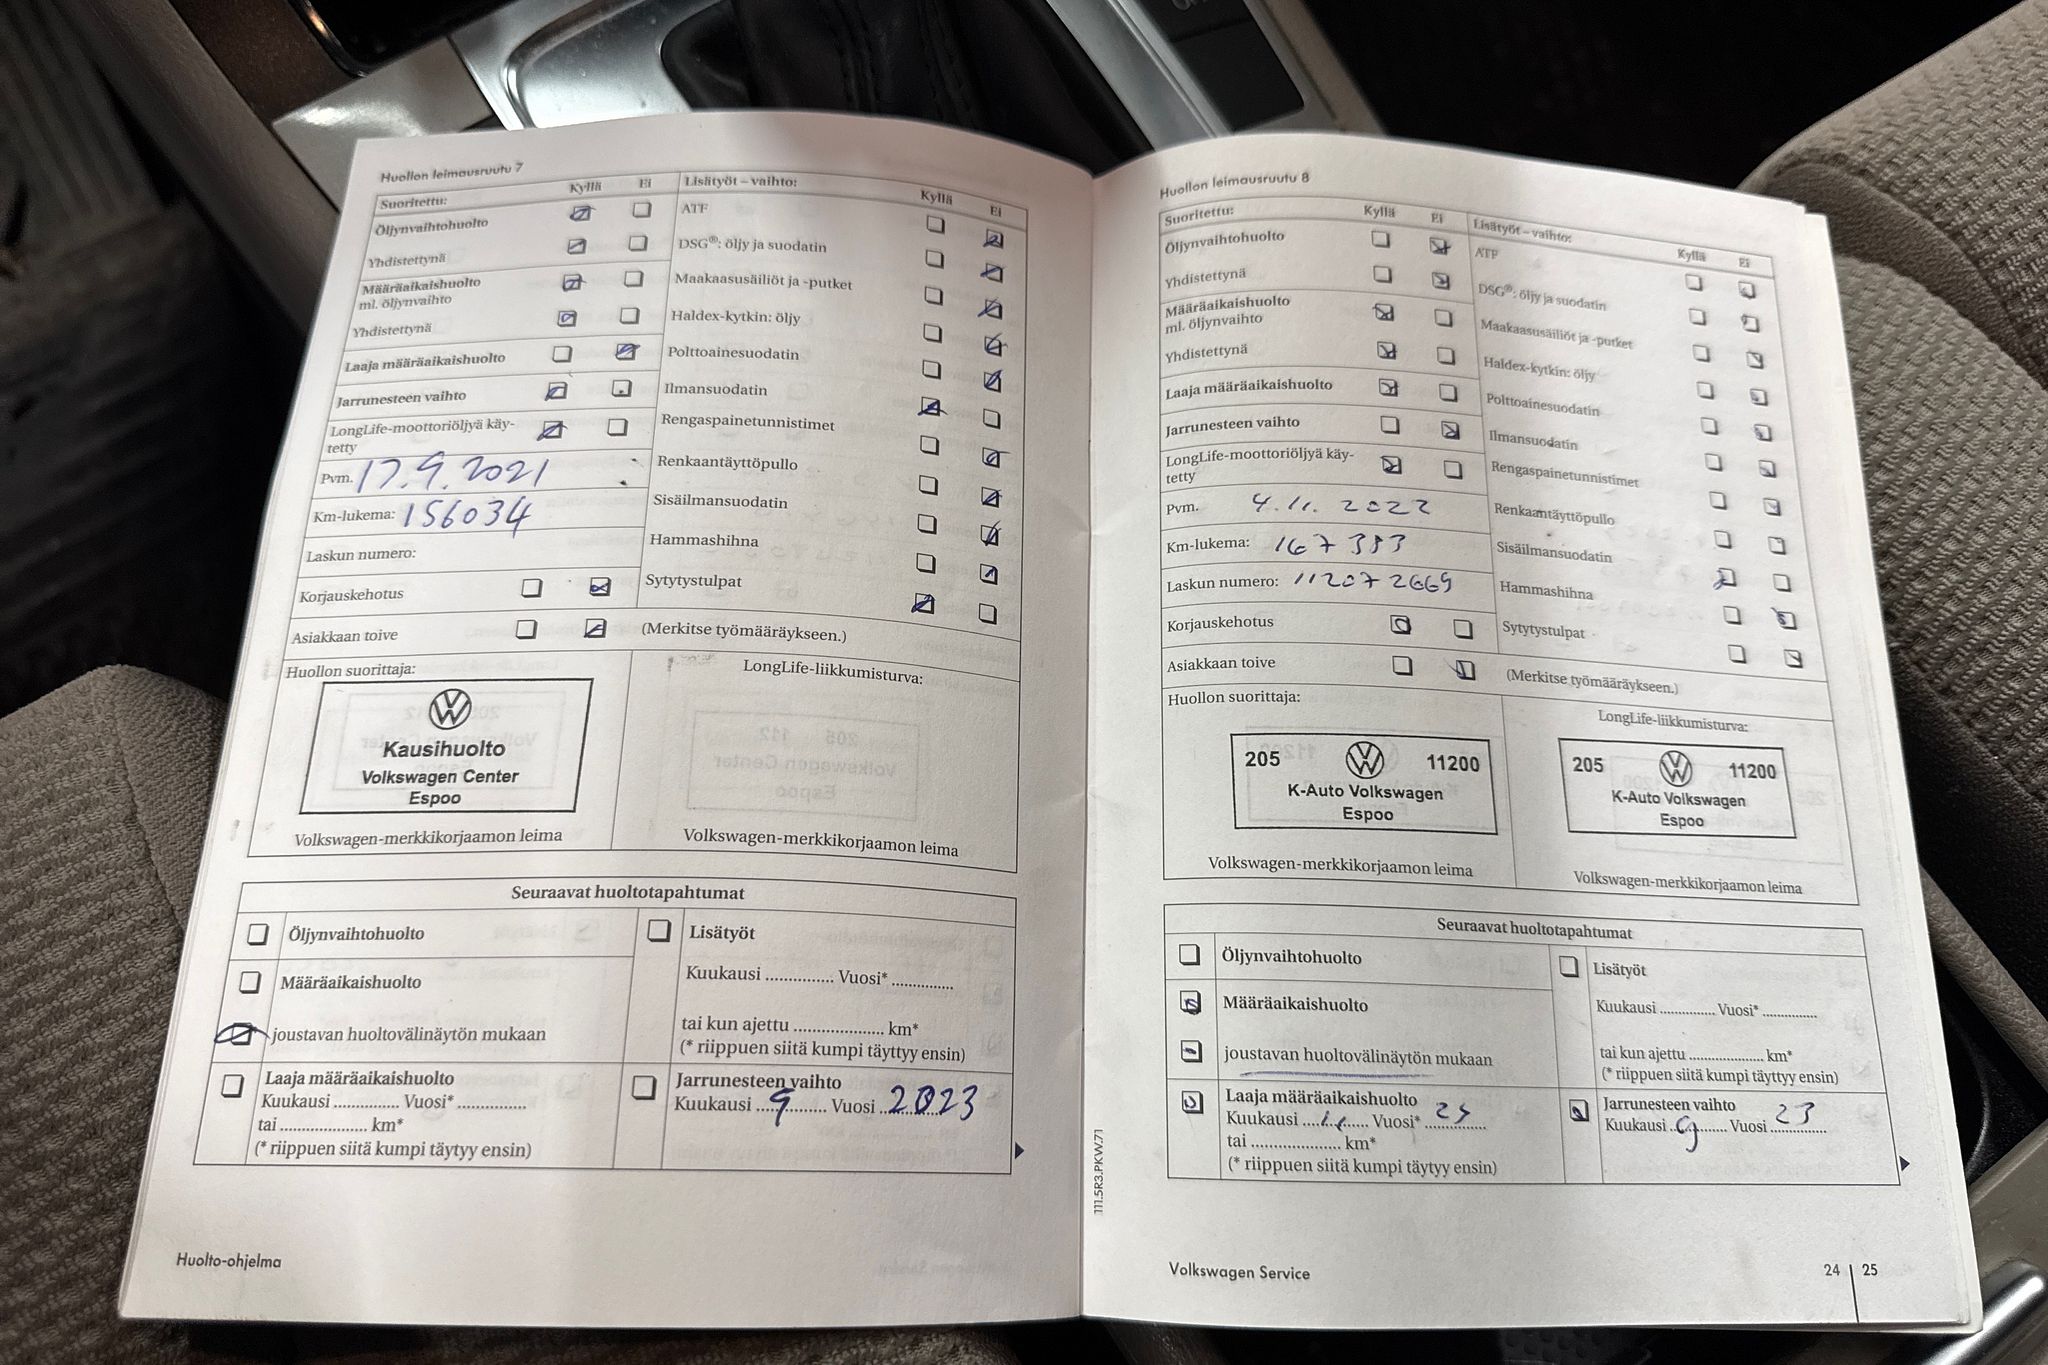 Huollon leimausruutu 7
Suoritettu: Kyllä Ei
Öljynvaihtohuolto
Yhdistettynä
Määräaikaishuolto
ml. öljynvaihto
Yhdistettynä
Laaja määräaikaishuolto
Jarrunesteen vaihto
LongLife-moottoriöljyä käy-
tetty
Pvm. 17.9.2021
Km-lukema: 156034
Laskun numero:
Korjauskehotus
Asiakkaan toive
Lisätyöt – vaihto: Kyllä Ei
ATF
DSG®: öljy ja suodatin
Maakaasusäiliöt ja -putket
Haldex-kytkin: öljy
Polttoainesuodatin
Ilmansuodatin
Rengaspainetunnistimet
Renkaantäyttöpullo
Sisäilmansuodatin
Hammashihna
Sytytystulpat
(Merkitse työmääräykseen.)
Huollon suorittaja:
Kausihuolto
Volkswagen Center
Espoo
Volkswagen-merkkikorjaamon leima
LongLife-liikkumisturva:
Volkswagen-merkkikorjaamon leima
Seuraavat huoltotapahtumat
Öljynvaihtohuolto
Määräaikaishuolto
joustavan huoltovälinäytön mukaan
Laaja määräaikaishuolto
Kuukausi .............. Vuosi* ..............
tai .................... km*
(* riippuen siitä kumpi täytyy ensin)
Lisätyöt
Kuukausi .............. Vuosi* .............
tai kun ajettu .................... km*
(* riippuen siitä kumpi täyttyy ensin)
Jarrunesteen vaihto
Kuukausi 9 Vuosi 2023
Huolto-ohjelma
Huollon leimausruutu 8
Suoritettu: Kyllä Ei
Öljynvaihtohuolto
Yhdistettynä
Määräaikaishuolto
ml. öljynvaihto
Yhdistettynä
Laaja määräaikaishuolto
Jarrunesteen vaihto
LongLife-moottoriöljyä käy-
tetty
Pvm. 4.11.2022
Km-lukema: 167383
Laskun numero: 112072669
Korjauskehotus
Asiakkaan toive
Lisätyöt – vaihto: Kyllä Ei
ATF
DSG®: öljy ja suodatin
Maakaasusäiliöt ja -putket
Haldex-kytkin: öljy
Polttoainesuodatin
Ilmansuodatin
Rengaspainetunnistimet
Renkaantäyttöpullo
Sisäilmansuodatin
Hammashihna
Sytytystulpat
(Merkitse työmääräykseen.)
Huollon suorittaja:
205 11200
K-Auto Volkswagen
Espoo
Volkswagen-merkkikorjaamon leima
LongLife-liikkumisturva:
205 11200
K-Auto Volkswagen
Espoo
Volkswagen-merkkikorjaamon leima
Seuraavat huoltotapahtumat
Öljynvaihtohuolto
Määräaikaishuolto
joustavan huoltovälinäytön mukaan
Laaja määräaikaishuolto
Kuukausi 11 Vuosi*
tai .................... km*
(* riippuen siitä kumpi täytyy ensin)
Lisätyöt
Kuukausi .............. Vuosi* .............
tai kun ajettu .................... km*
(* riippuen siitä kumpi täyttyy ensin)
Jarrunesteen vaihto
Kuukausi 9 Vuosi 23
111.5R3.PKW.71
Volkswagen Service
24 | 25